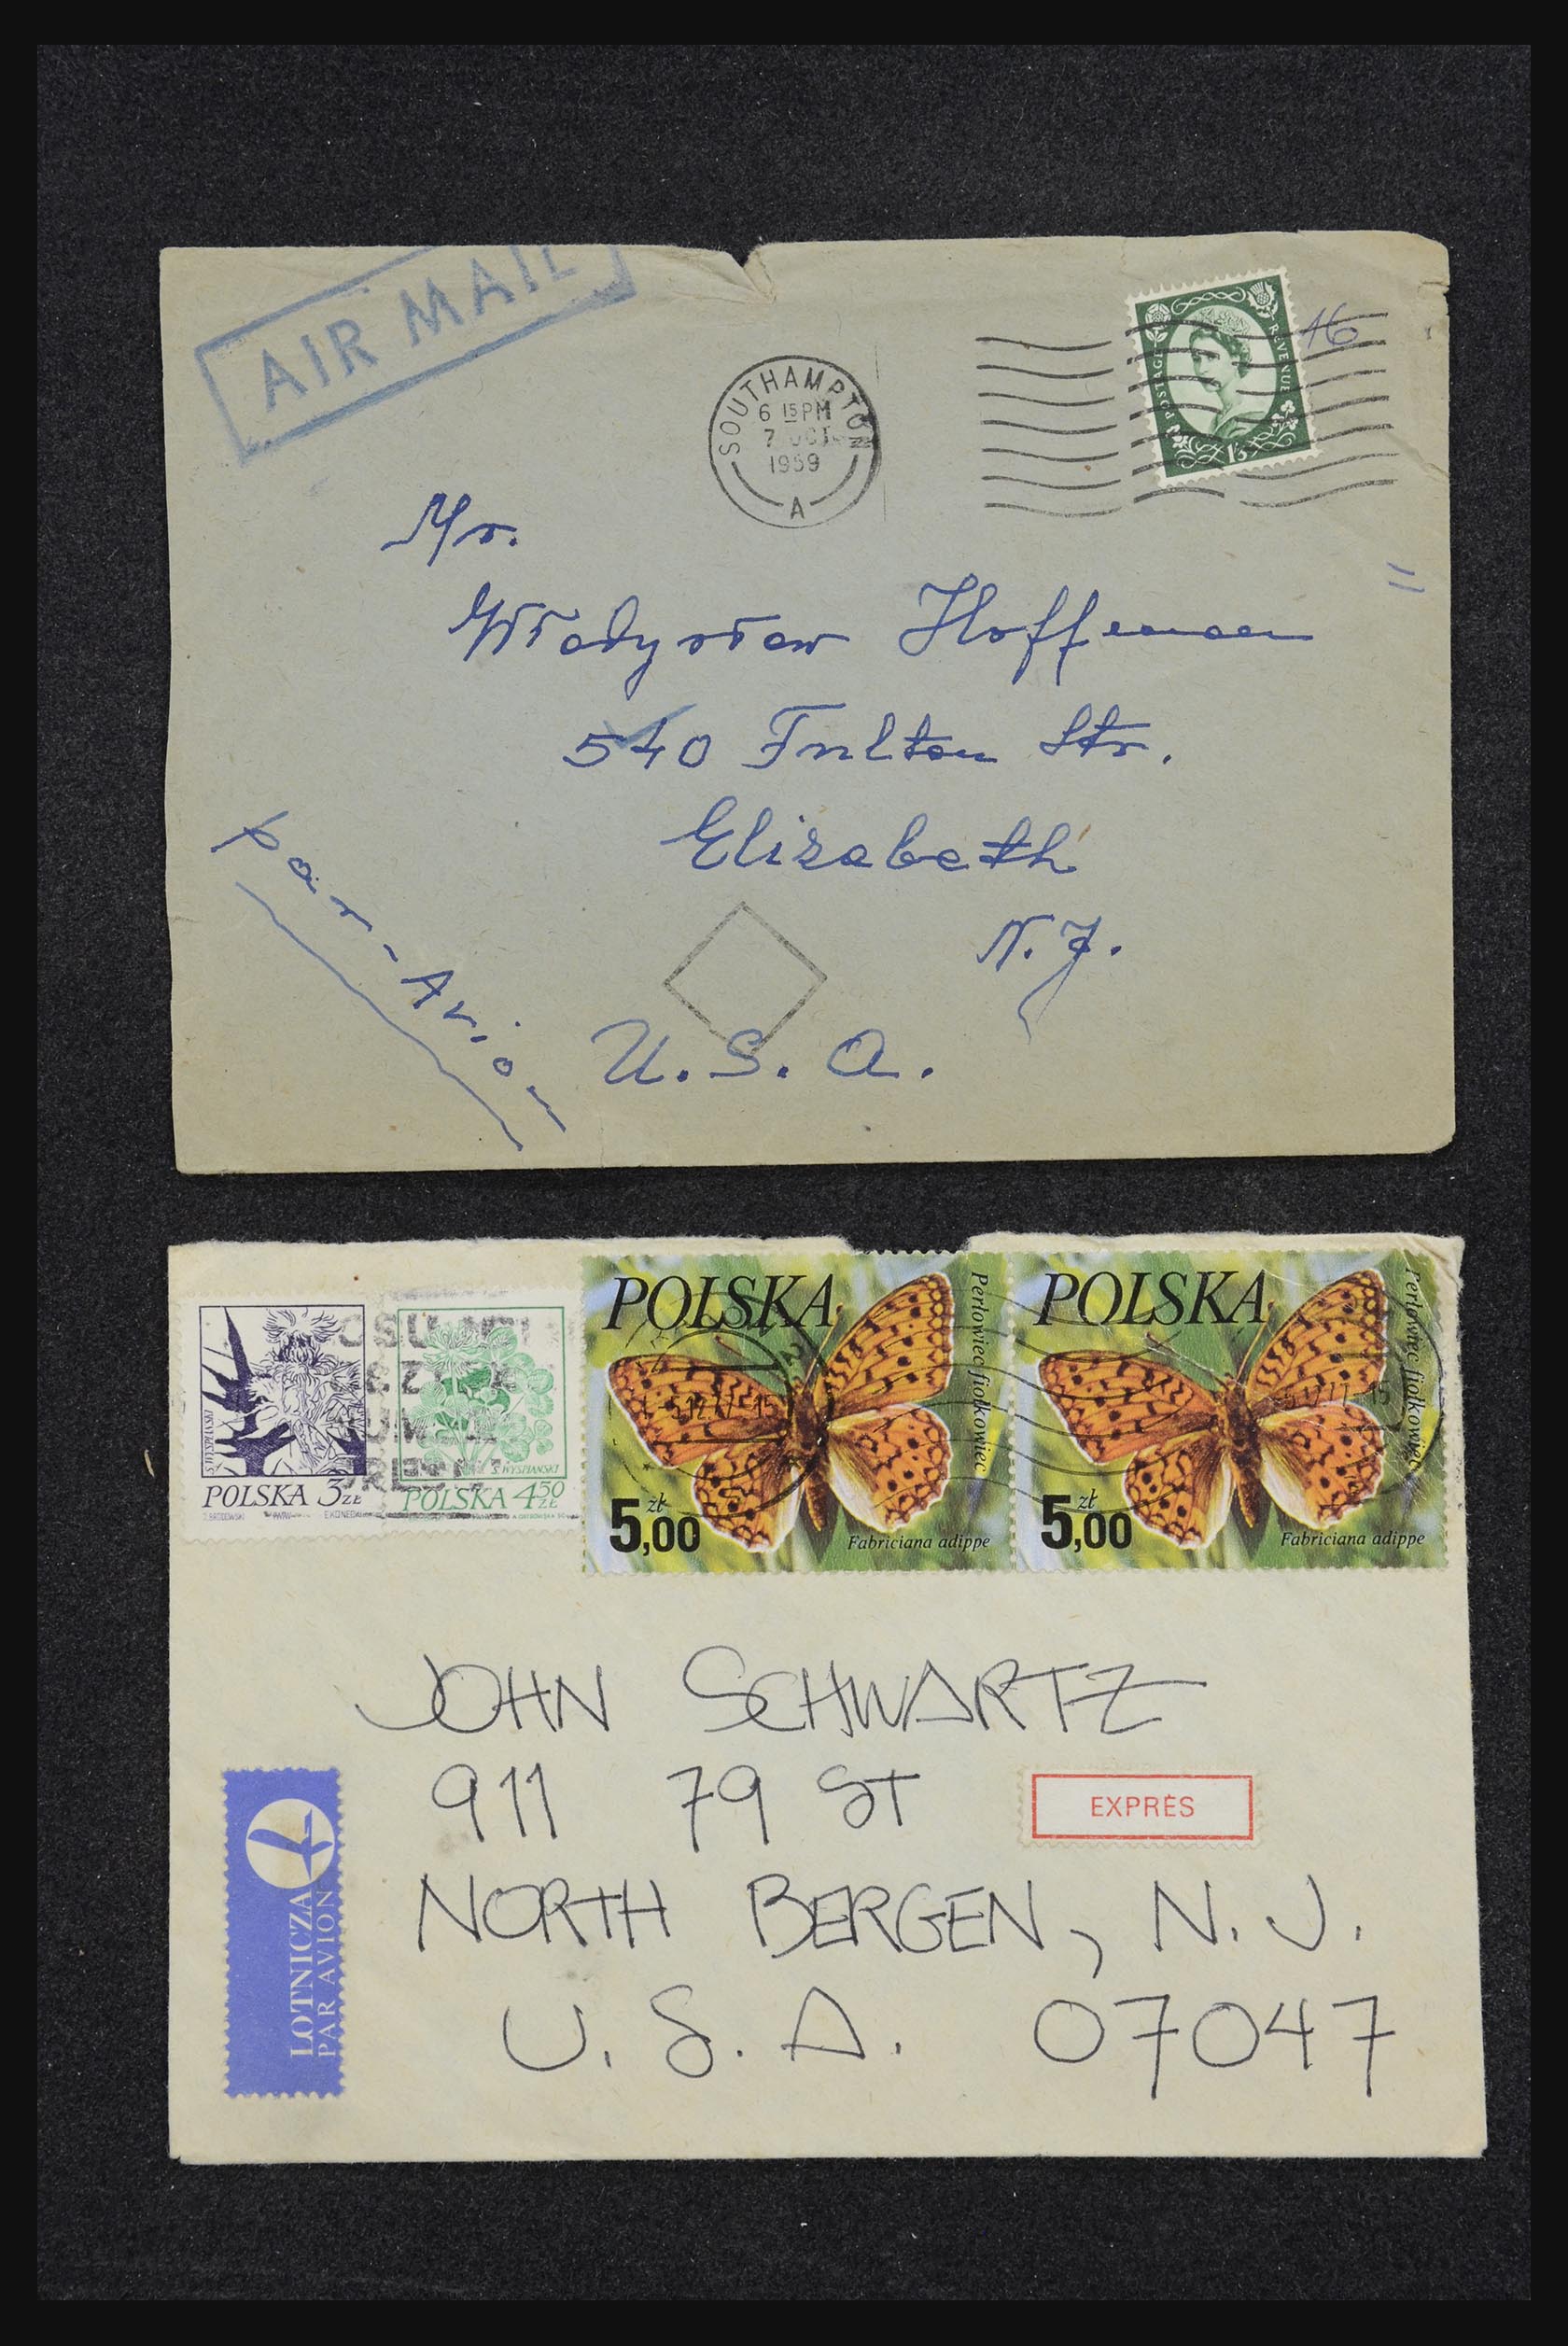 AIR MAIL
SOUTHAMPTON
6 15 PM
7 OCT
1959
A
POSTAGE
REVENUE
1/3
16
Mr.
Władysław Hoffman
540 Fulton Str.
Elizabeth
N.J.
U.S.A.
par-Avion
S. WYSPIAŃSKI
POLSKA 3 ZŁ
S. WYSPIAŃSKI
POLSKA 4 50 ZŁ
POLSKA
Perłowiec fiołkowiec
5,00 zł
Fabriciana adippe
POLSKA
Perłowiec fiołkowiec
5,00 zł
Fabriciana adippe
JOHN SCHWARTZ
911 79 ST
EXPRÈS
NORTH BERGEN, N.J.
U.S.A. 07047
LOTNICZA
PAR AVION